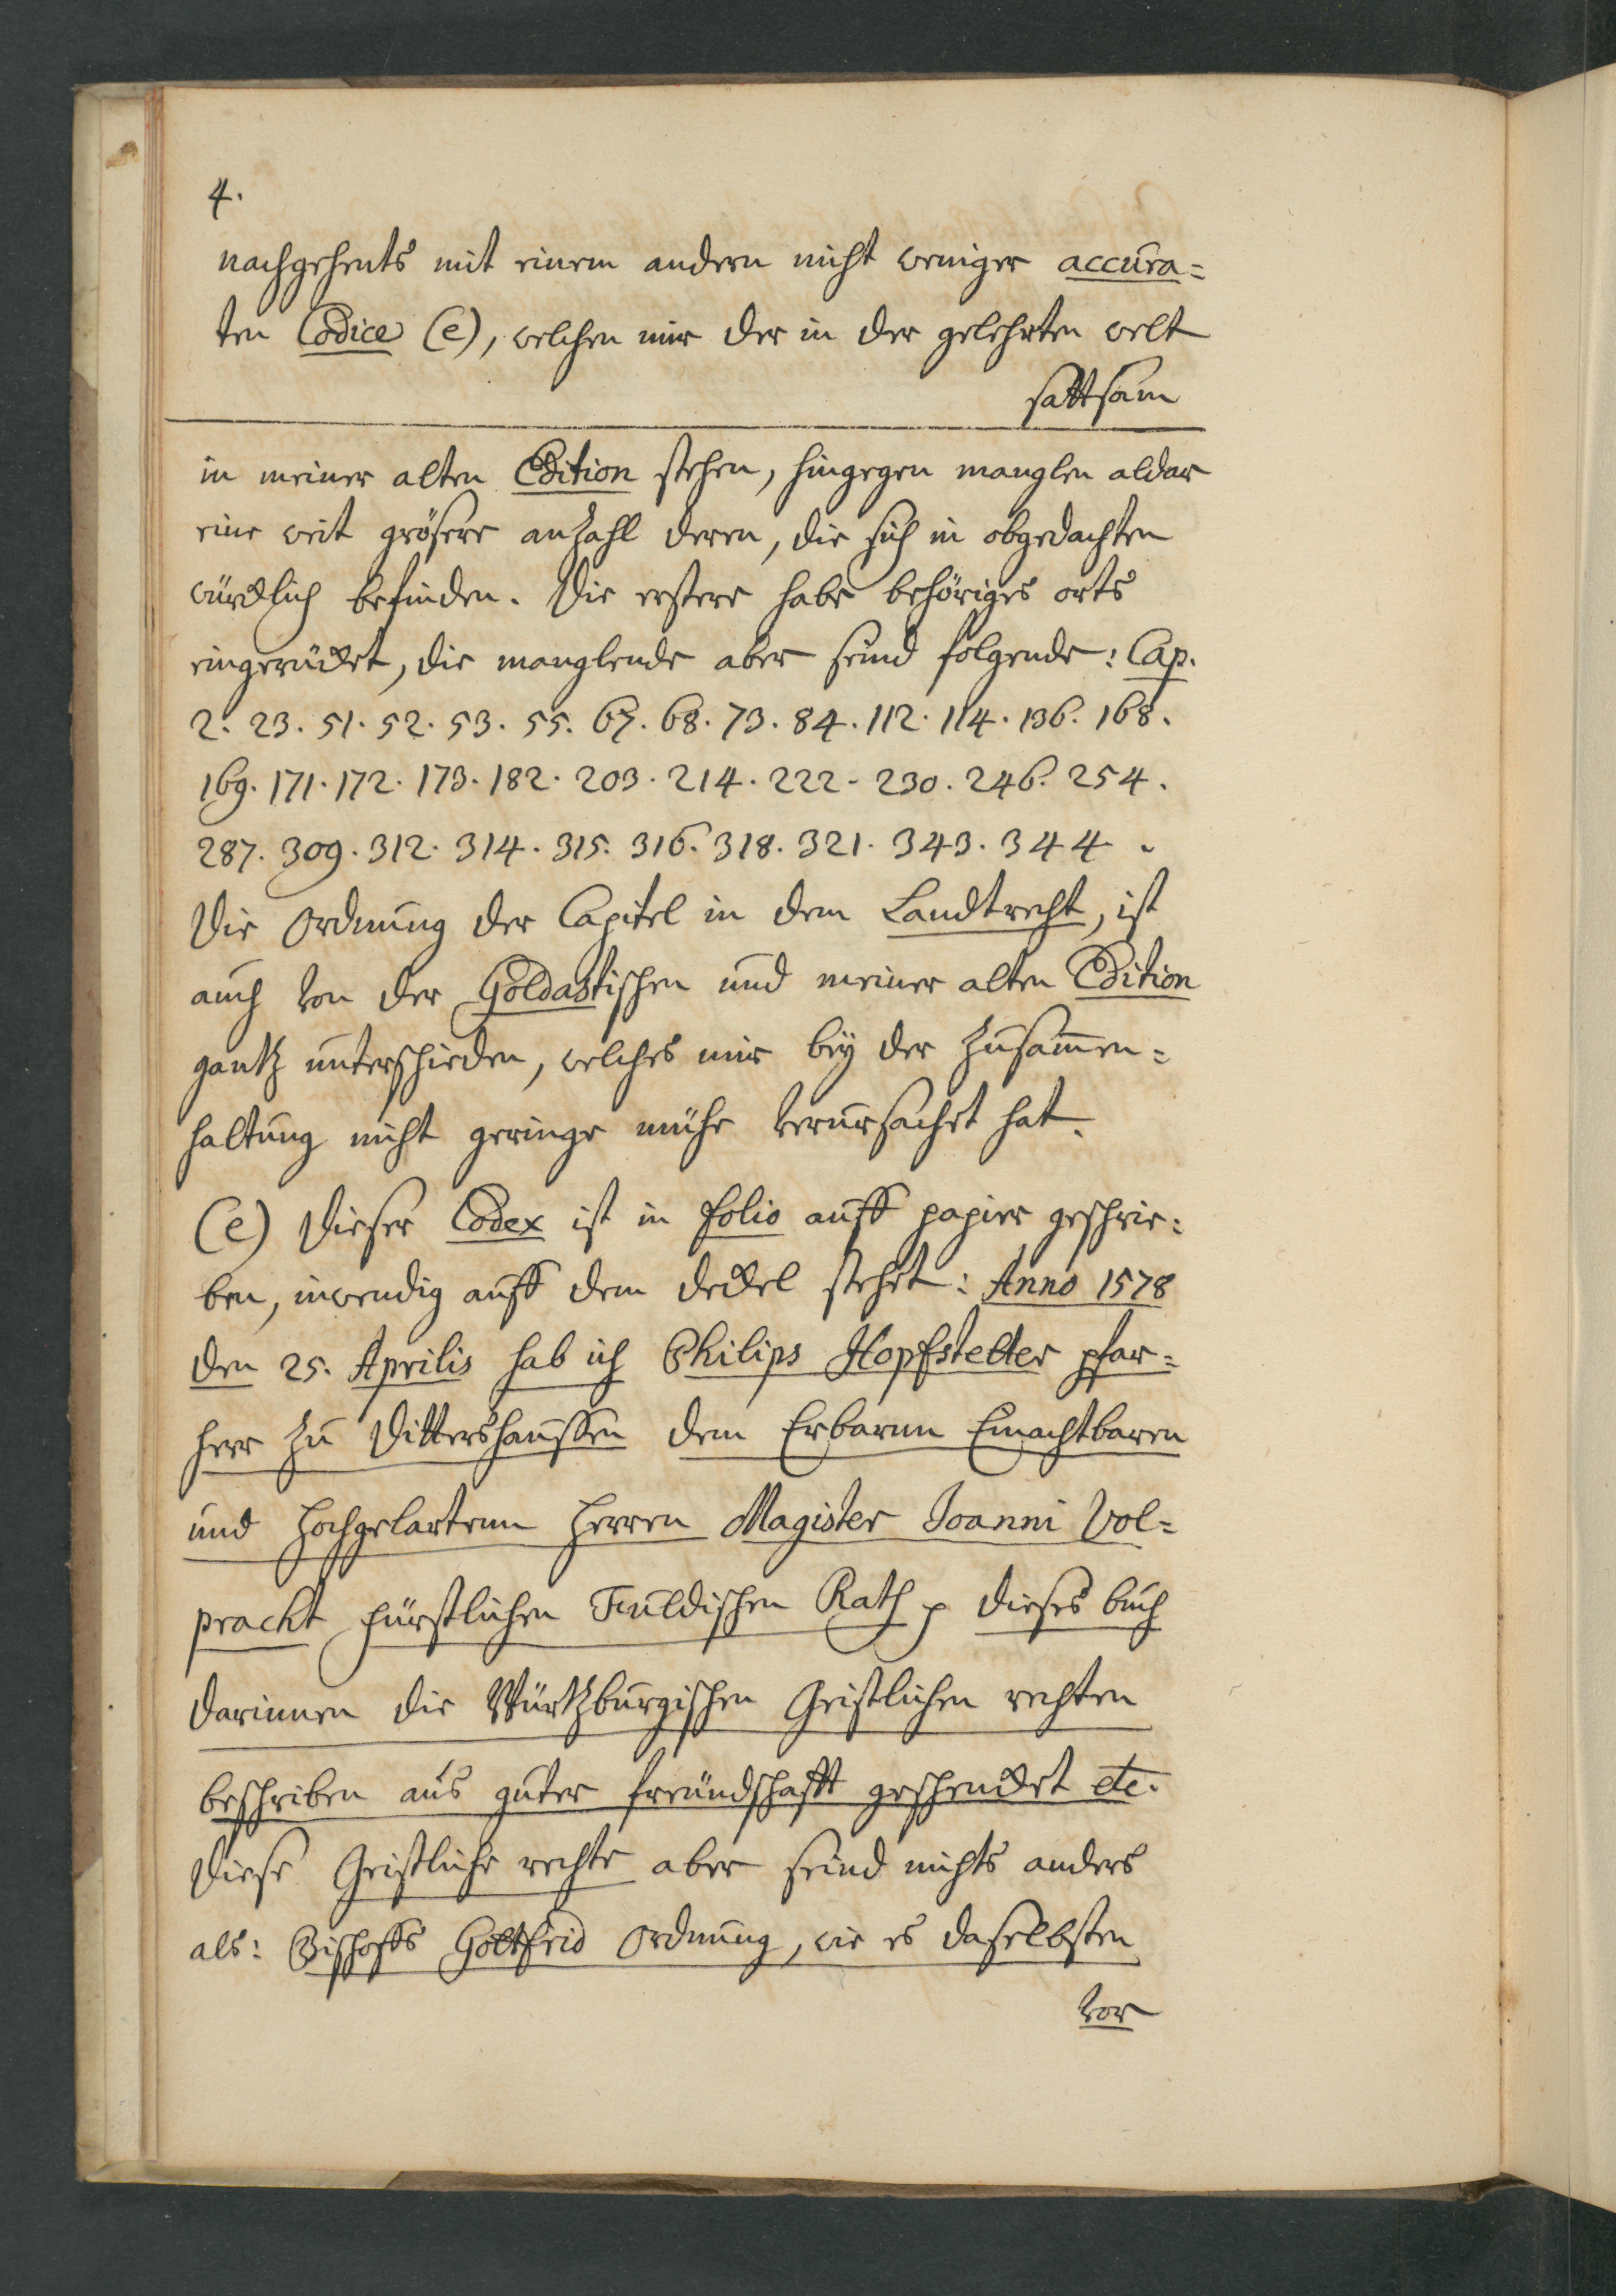 4.
nachgehents mit einem andern nicht weniger accura=
ten Codice (e), welchen mir der in der gelehrten welt
sattsam
in meiner alten Edition stehen, hingegen manglen aldar
eine weit grösere anzahl deren, die sich in obgedachten
würcklich befinden. Die erstere habe behöriges orts
eingerücket, die manglende aber seind folgende: Cap.
2. 23. 51. 52. 53. 55. 67. 68. 73. 84. 112. 114. 136. 168.
169. 171. 172. 173. 182. 203. 214. 222. 230. 246. 254.
287. 309. 312. 314. 315. 316. 318. 321. 343. 344.
Die Ordnung der Capitel in dem Landtrecht, ist
auch von der Goldastischen und meiner alten Edition
gantz unterschieden, welches mir bey der zusammen=
haltung nicht geringe mühe verursachet hat.
(e) Dieser Codex ist in folio auff papier geschrie=
ben, inwendig auff dem deckel stehet: Anno 1578
den 25. Aprilis hab ich Philips Hopfstetter pfar=
herr zu Dittershaussen dem Erbarnn Einachtbaren
und hochgelartenn Herren Magister Joanni Vol=
pracht fürstlichen Fuldischen Rath p dieses buch
darinnen die Würtzburgischen Geistlichen rechten
beschriben aus guter freundschafft geschencket etc.
Diese Geistliche rechte aber seind nichts anders
als: Bischoffs Gottfrid Ordnung, wie es daselbsten
vor